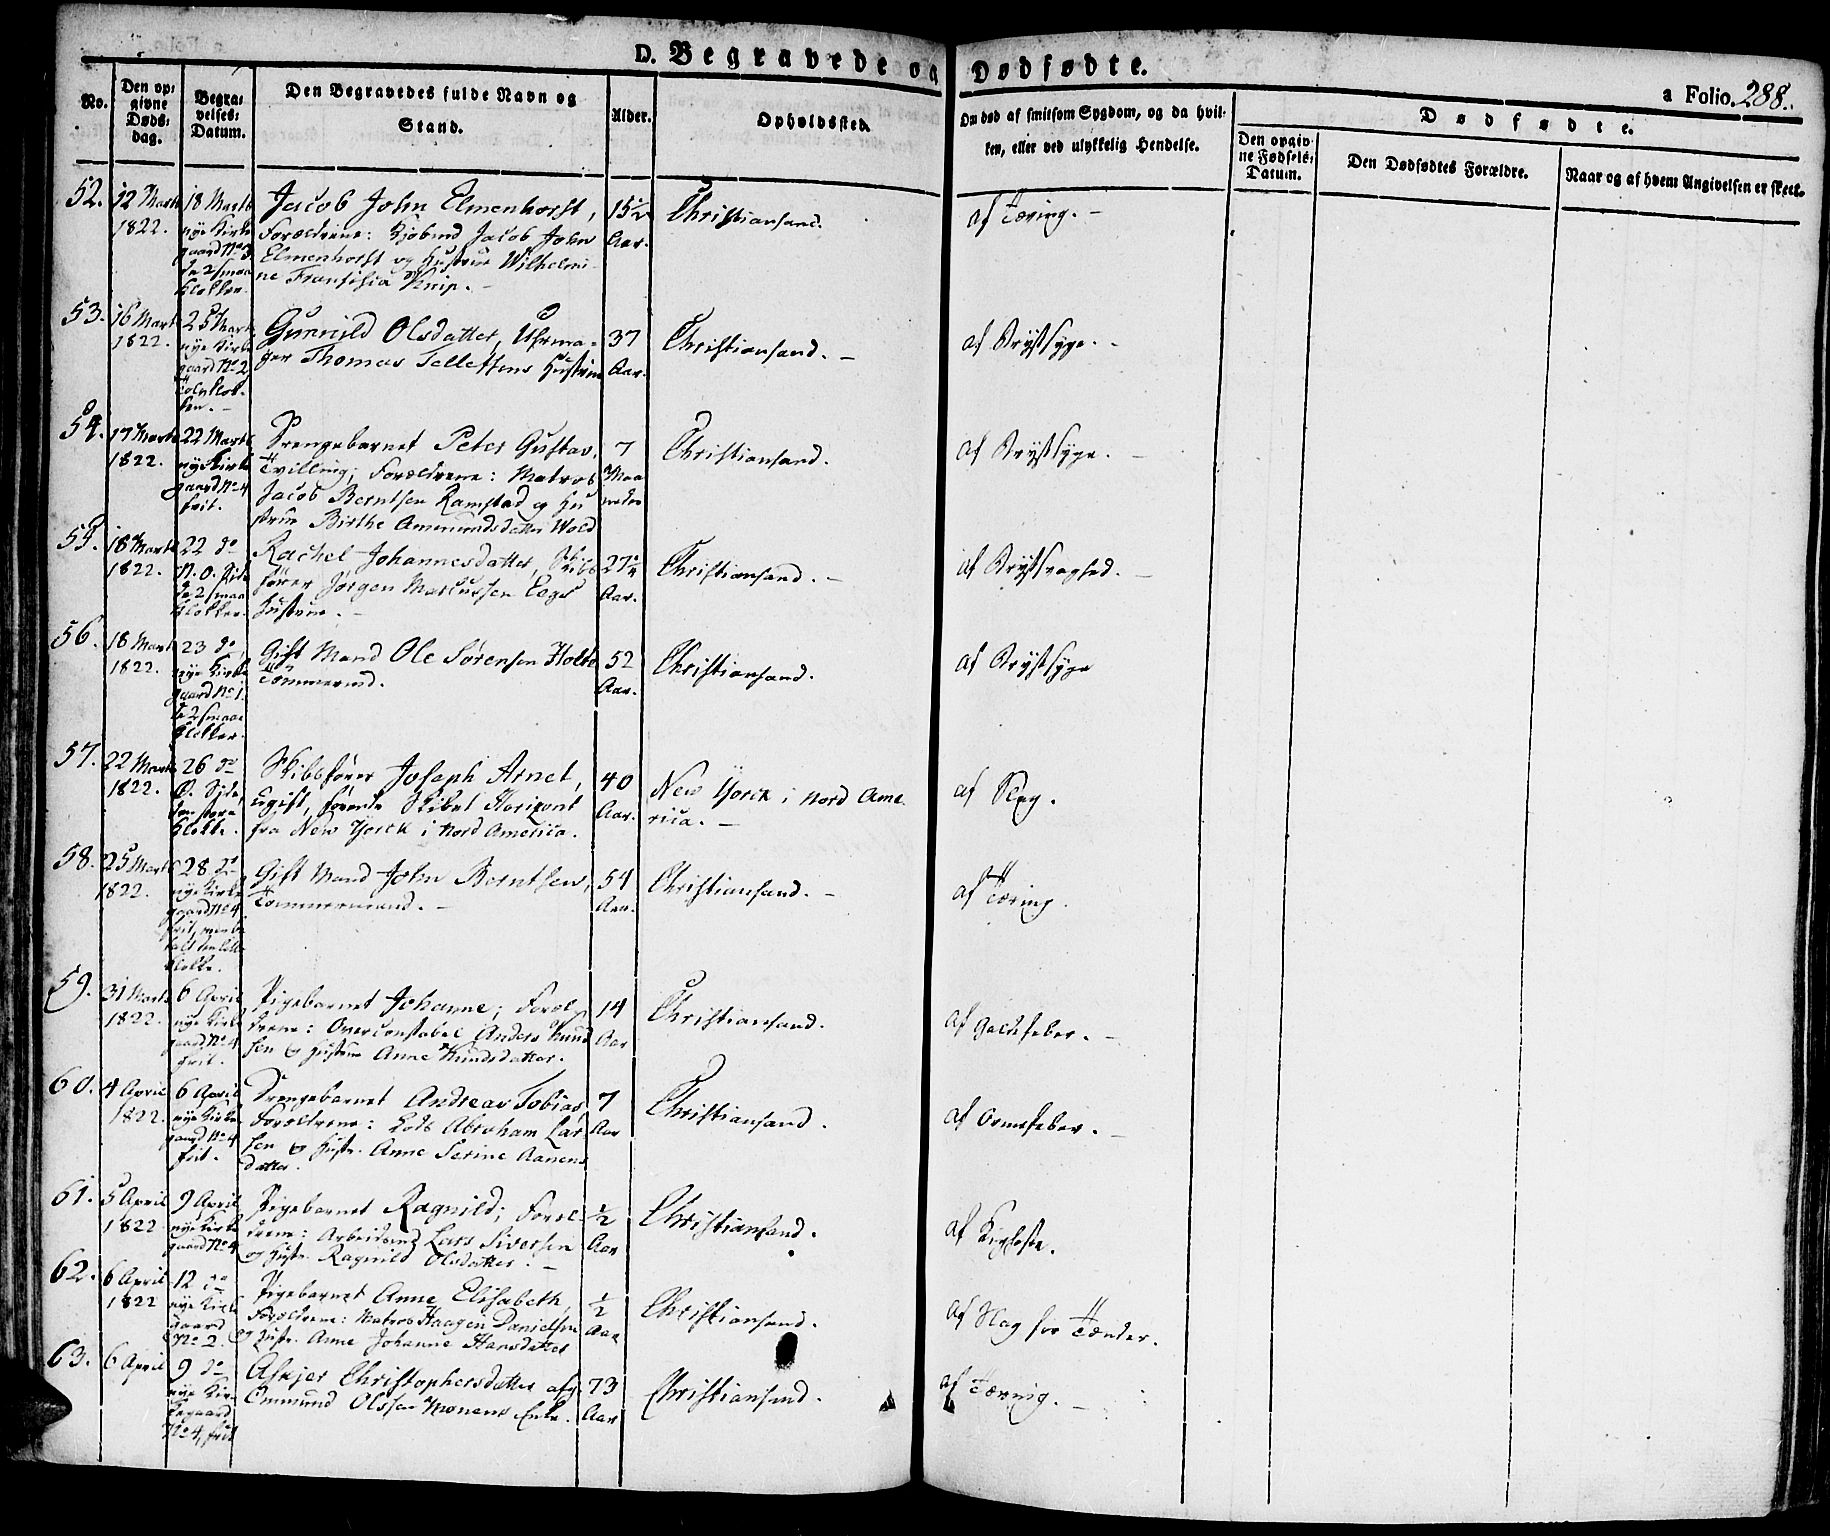 D. Begravede og Dødfødte.
a Folio. 288.
No.
Den op-
givne
Døds-
dag.
Begra-
velses-
Datum.
Den Begravedes fulde Navn og
Stand.
Alder.
Opholdssted.
Om død af smitsom Sygdom, og da hvil-
ken, eller ved ulykkelig Hendelse.
Dødfødte.
Den opgiv-
ne Fødsels-
Datum.
Den Dødfødtes Forældre.
Naar og af hvem Angivelsen er skeet.
52.
12 Marts
1822.
18 Marts
nye Kirke
gaard No 3
de 2 smaa
Klokker.
Jacob John Elmenhorst,
Forældrene: Kjøbmd Jacob John
Elmenhorst og Hustrue Wilhelmi-
ne Fransisia Knip.
15½
Aar.
Christiansand.
af Tæring.
53.
16 Mart
1822.
25 Mart
nye Kirke
gaard No 2
Tolvklok-
ken.
Gunnild Olsdatter, Uhrma-
ger Thomas Tellefsens Hustrue
37
Aar.
Christiansand.
af Brystsyge.
54.
17 Marts
1822.
22 Marts
nye Kirke
gaard No 4
frit.
Drengebarnet Peter Gustav,
Tvilling; Forældrene: Matros
Jacob Berntsen Ramstad og Hu
strue Birthe Ammundsdatter Wold
7
Maa
neder
Christiansand.
af Brystsyge.
55.
18 Marts
1822.
22 do
N. O. Side
de 2 smaa
Klokker.
Rachel Johannesdatter, Skibs
fører Jørgen Marcussen Eeges
Hustrue.
27¼
Aar.
Christiansand.
af Brystsvaghed.
56.
18 Mart
1822.
23 do
nye Kirke
gaard No 1.
de 2 smaa
Klokker.
Gift Mand Ole Sørensen Holte
Tømmermd.
52
Aar.
Christiansand.
af Brystsyge
57.
22 Marts
1822.
26 do
Ø. Side,
den store
Klokke.
Skibsfører Joseph Arnet,
ugift, førende Skibet Horizont
fra New Yorck i Nord America.
40
Aar.
New Yorck i Nord Ame
rica.
af Slag.
58.
25 Marts
1822.
28 do
nye Kirke
gaard No 4,
frit, men be
talt den lille
Klokke.
Gift Mand John Berntsen,
Tømmermand.
54
Aar.
Christiansand.
af Tæring.
59.
31 Marts
1822.
6 April
nye Kirke
gaard No 4
frit.
Pigebarnet Johanne; Foræl-
drene: Overconstabel Anders Knud
sen og Hustrue Anne Knudsdatter.
14
Aar
Christiansand.
af Galdefeber.
60.
4 April
1822.
6 April
nye Kirke
gaard No 4
frit.
Drengebarnet Andreas Tobias,
Forældrene: Lods Abraham Lar
sen og Hustr. Anne Serine Aanens
datter.
7
Aar
Christiansand.
af Ormefeber.
61.
5 April
1822
9 April
nye Kirke
gaard No 4
Pigebarnet Ragnild; Foræl-
drene: Arbeidsmd Lars Siversen
og Hustr. Ragnild Olsdatter.
½
Aar
Christiansand.
af Kighoste.
62.
6 April
1822
12 do
nye Kirke
gaard
No 2.
Pigebarnet Anne Elisabeth,
Forældrene: Matros Haagen Danielsen
og Hustr. Anne Johanne Hansdatter
½
Aar
Christiansand.
af Slag for Tænder.
63.
6 April
9 do
nye Kir-
kegaard
No 4, frit
Askjer Christophersdatter afg.
Ommund Olssen Monens Enke.
73
Aar
Christiansand.
af Tæring.